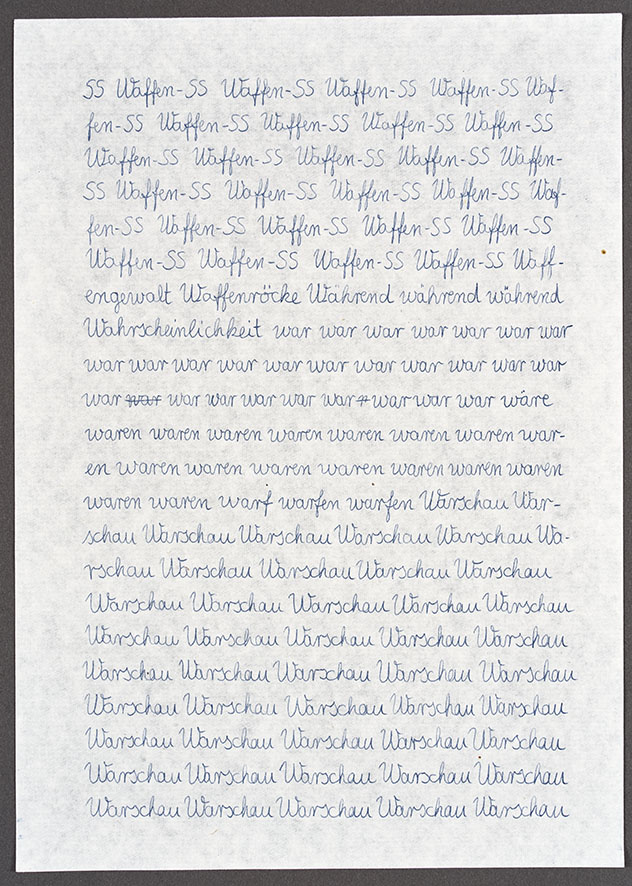 SS Waffen-SS Waffen-SS Waffen-SS Waffen-SS Waf-
fen-SS Waffen-SS Waffen-SS Waffen-SS Waffen-SS
Waffen-SS Waffen-SS Waffen-SS Waffen-SS Waffen-
SS Waffen-SS Waffen-SS Waffen-SS Waffen-SS Waf-
fen-SS Waffen-SS Waffen-SS Waffen-SS Waffen-SS
Waffen-SS Waffen-SS Waffen-SS Waffen-SS Waff-
engewalt Waffenröcke Während während während
Wahrscheinlichkeit war war war war war war war
war war war war war war war war war war war
war war war war war war war war war war wäre
waren waren waren waren waren waren waren war-
en waren waren waren waren waren waren waren
waren waren warf warfen warfen Warschau War-
schau Warschau Warschau Warschau Warschau Wa-
rschau Warschau Warschau Warschau Warschau
Warschau Warschau Warschau Warschau Warschau
Warschau Warschau Warschau Warschau Warschau
Warschau Warschau Warschau Warschau Warschau
Warschau Warschau Warschau Warschau Warschau
Warschau Warschau Warschau Warschau Warschau
Warschau Warschau Warschau Warschau Warschau
Warschau Warschau Warschau Warschau Warschau